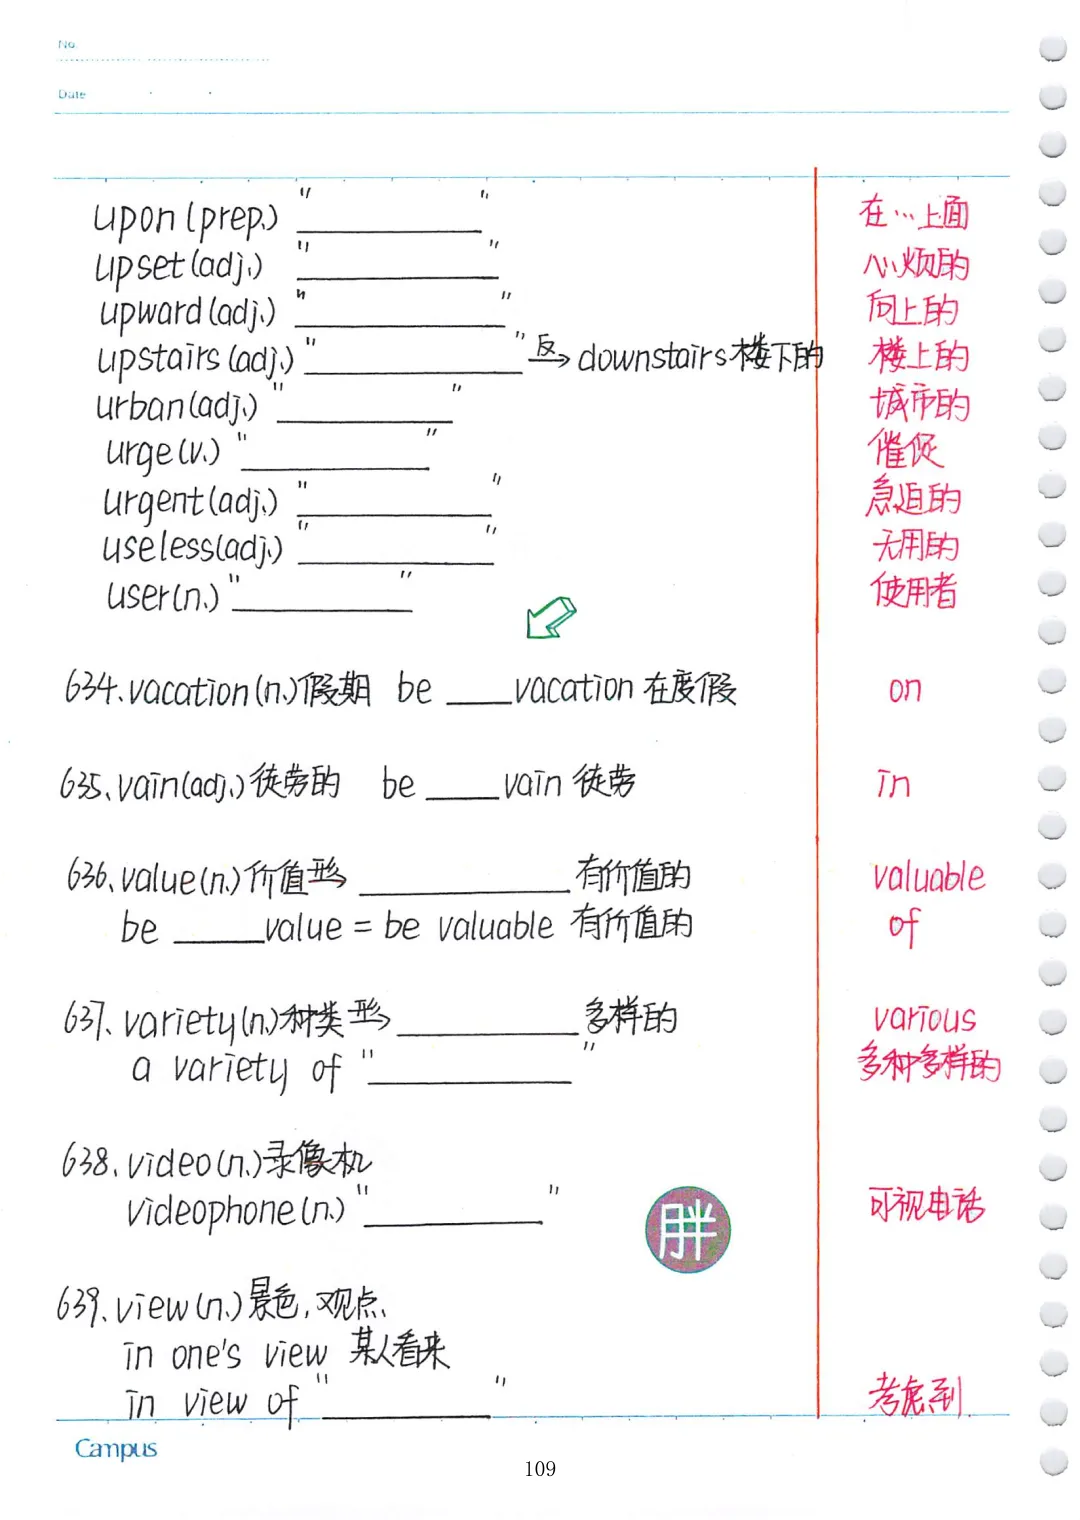 No.
Date
upon (prep.) " " 在…上面
upset (adj.) " " 心烦的
upward (adj.) " " 向上的
upstairs (adj.) " " 反→ downstairs 楼下的 楼上的
urban (adj.) " " 城市的
urge (v.) " " 催促
urgent (adj.) " " 急迫的
useless (adj.) " " 无用的
user (n.) " " 使用者
634. vacation (n.) 假期 be ____ vacation 在度假 on
635. vain (adj.) 徒劳的 be ____ vain 徒劳 in
636. value (n.) 价值 形→ ____ 有价值的 valuable
be ____ value = be valuable 有价值的 of
637. variety (n.) 种类 形→ ____ 多样的 various
a variety of " " 多种多样的
638. video (n.) 录像机
videophone (n.) " " 可视电话
胖
639. view (n.) 景色, 观点.
in one's view 某人看来
in view of " " 考虑到
Campus
109